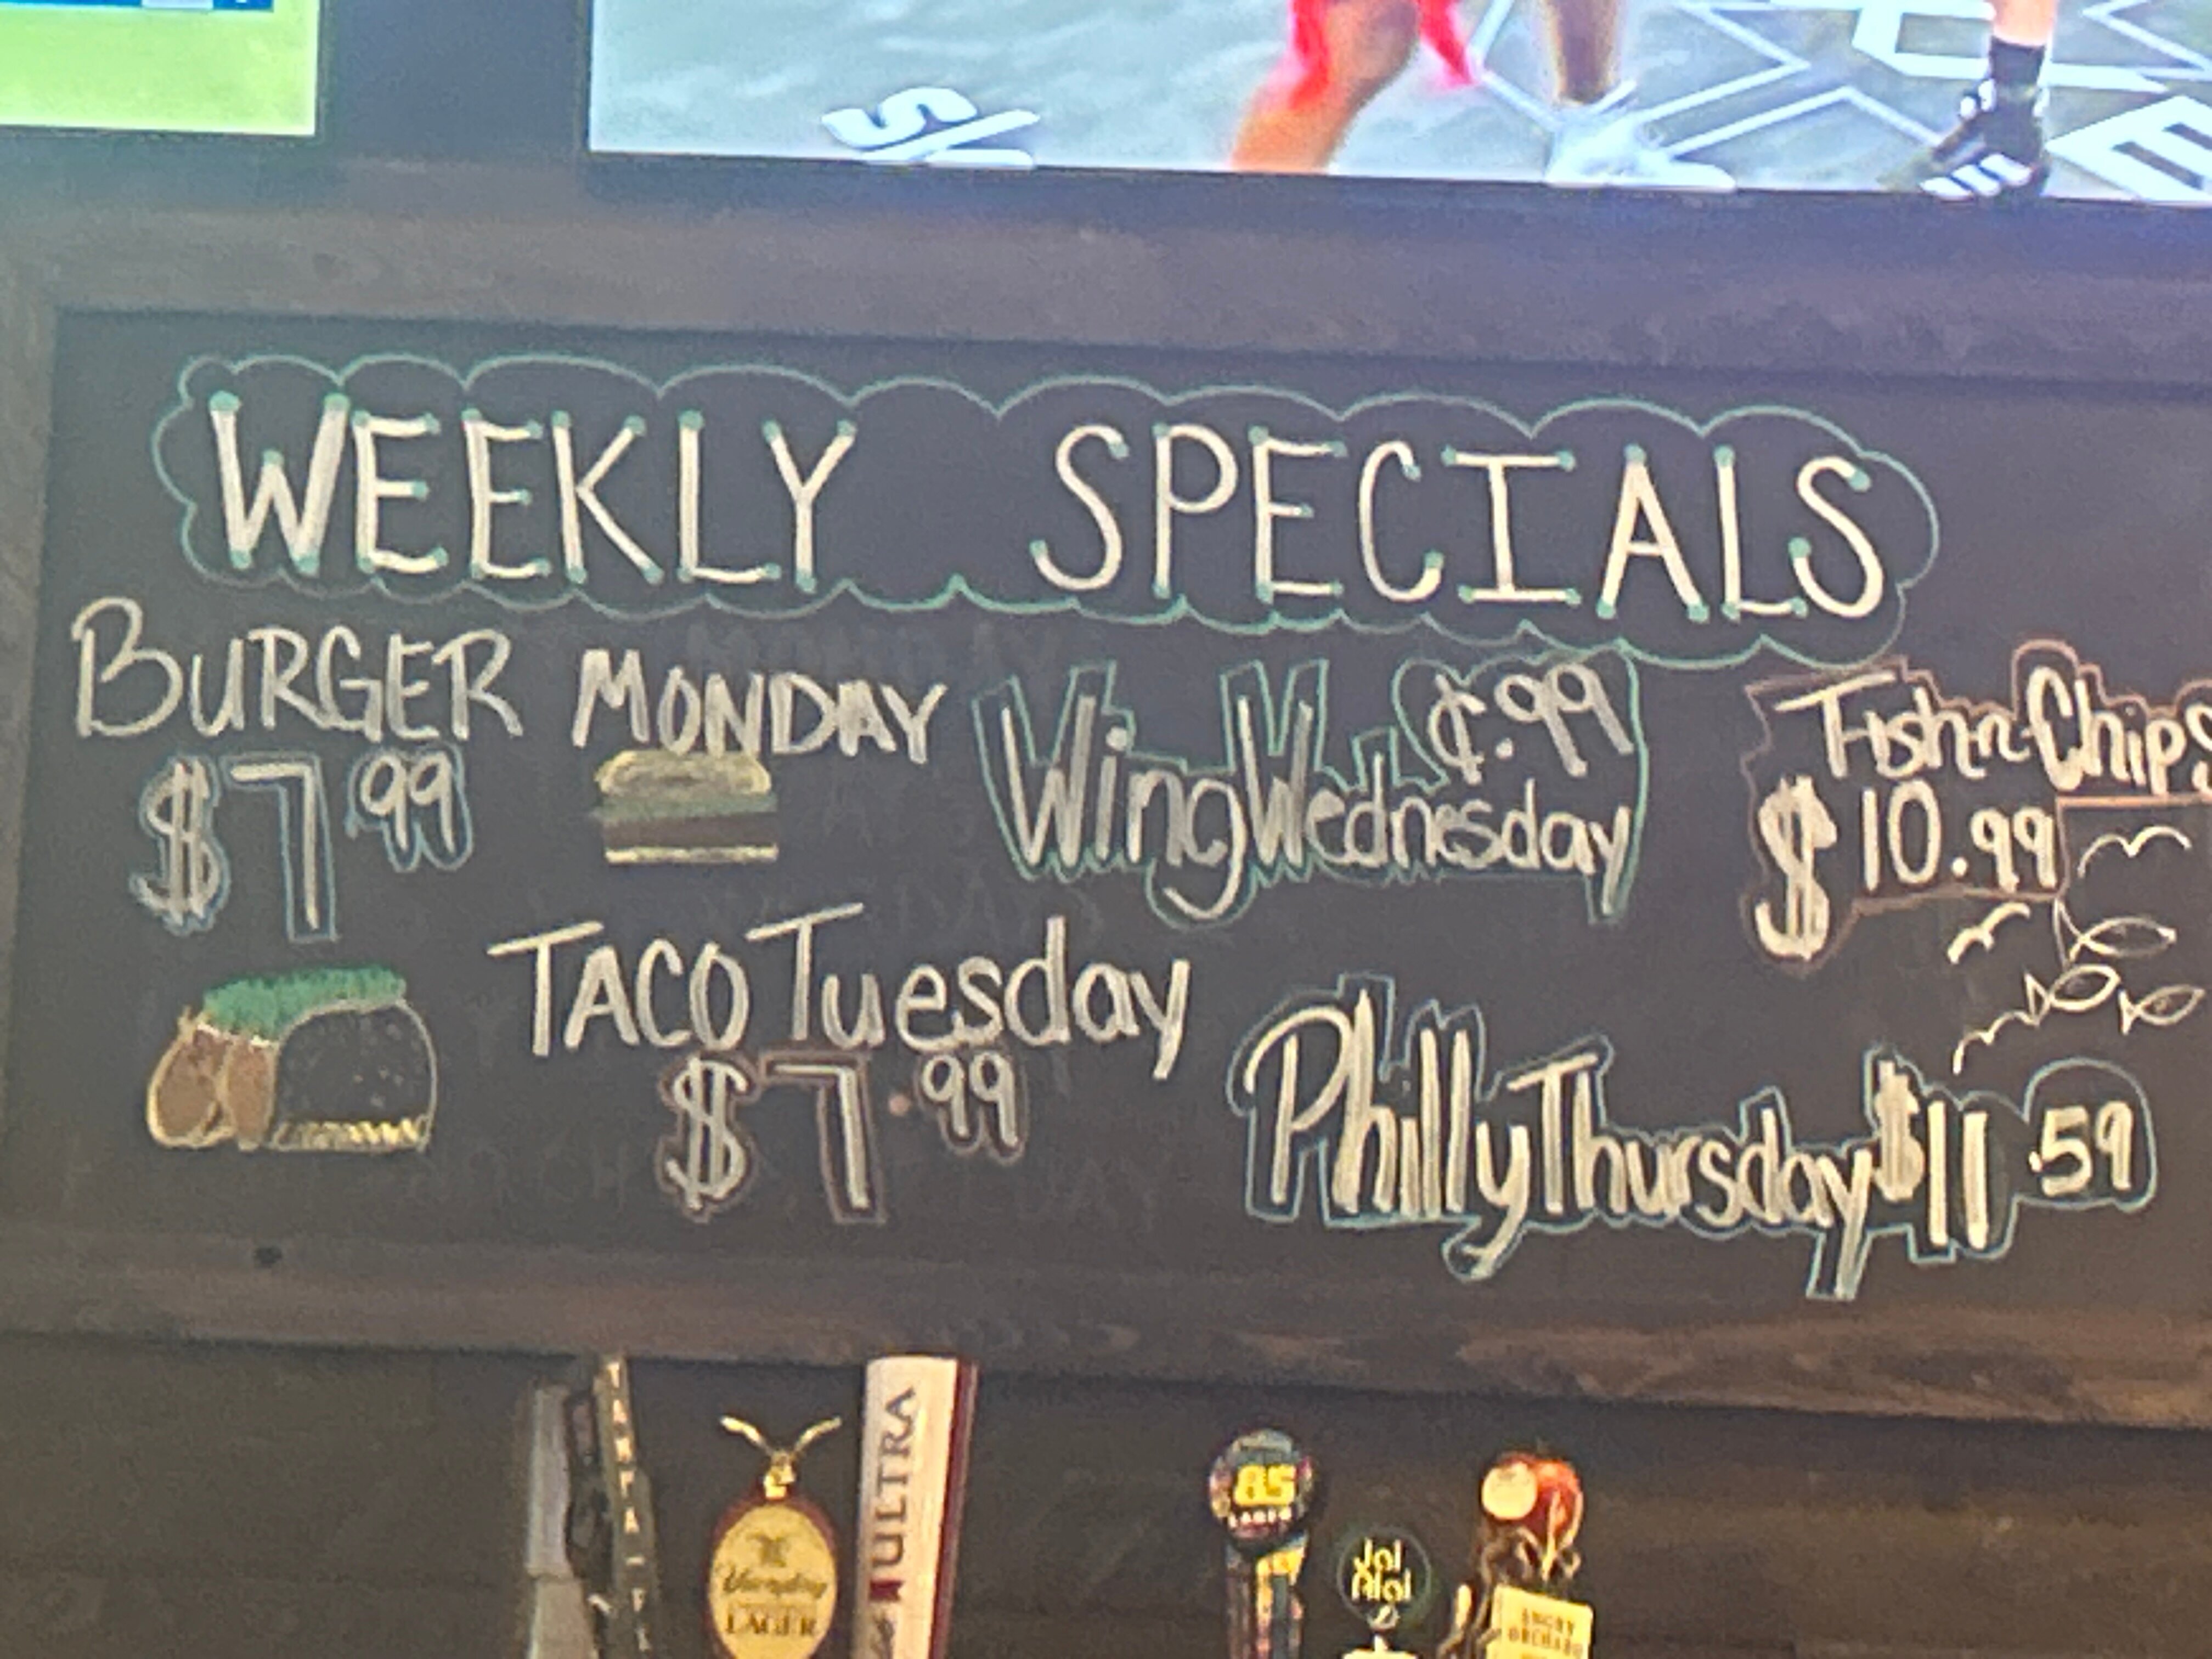 WEEKLY SPECIALS
BURGER MONDAY
$7.99
Wing Wednesday
¢.99
Fish-n-Chips
$10.99
TACO Tuesday
$7.99
Philly Thursday $11.59
TAMPA
Yuengling
LAGER
ULTRA
85
LAGER
Jai
Alai
ANGRY
ORCHARD